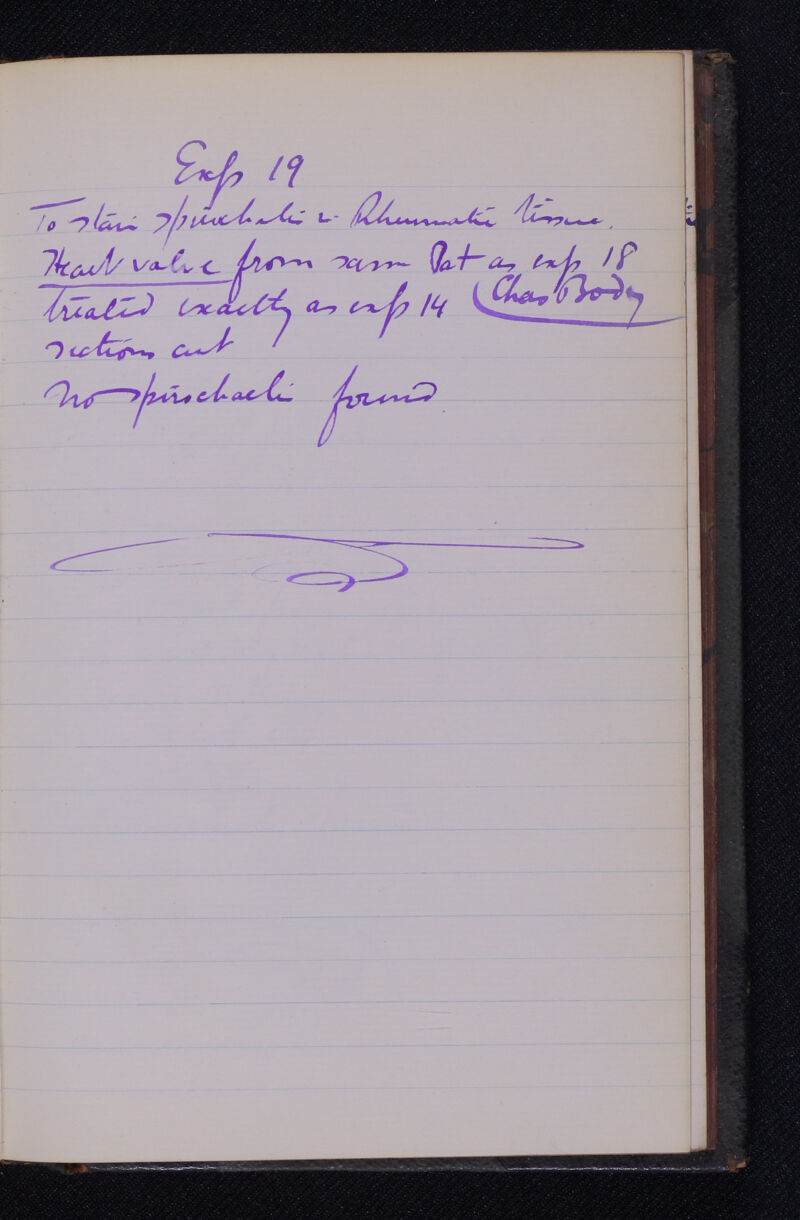 Exp 19
To stain spirochaeti in Rheumatic tissue.
Heart valve from same Pat as exp 18
treated exactly as exp 14 (Chas Body
sections cut
No spirochaeti found